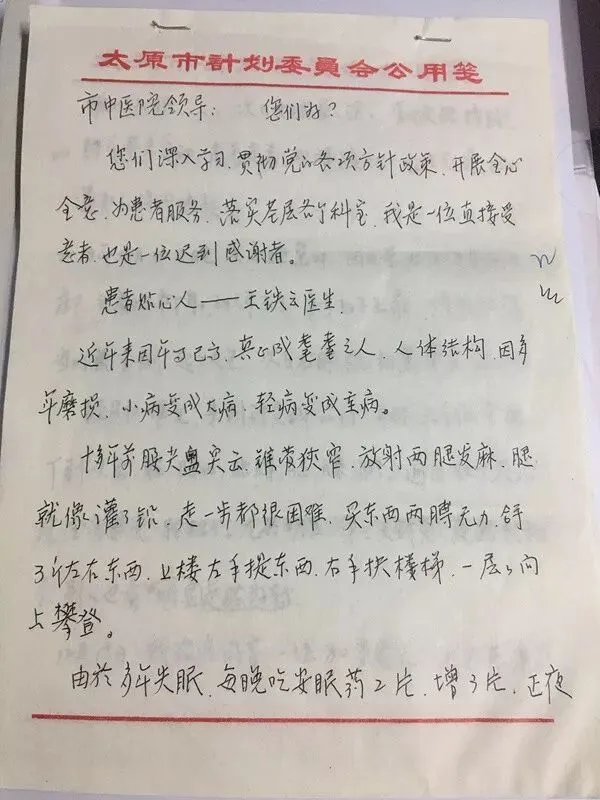 太原市計划委員会公用箋
市中医院领导： 您们好？
您们深入学习、贯彻党的各项方针政策、开展全心
全意、为患者服务、落实基层各个科室、我是一位直接受
患者、也是一位迟到感谢者。
患者贴心人——王铁云医生、
近年来因年事已高、真正成耄耋之人、人体结构、因多
年磨损、小病变成大病、轻病变成重病。
十多年前腰尖盘突云、锥管狭窄、放射两腿发麻、腿
就像灌了铅、走一步都很困难、买东西两膊无力、
3斤左右东西、上楼左手提东西、右手扶楼梯、一层々向
上攀登。
由於多年失眠、每晚吃安眠药2片、增3片、正夜